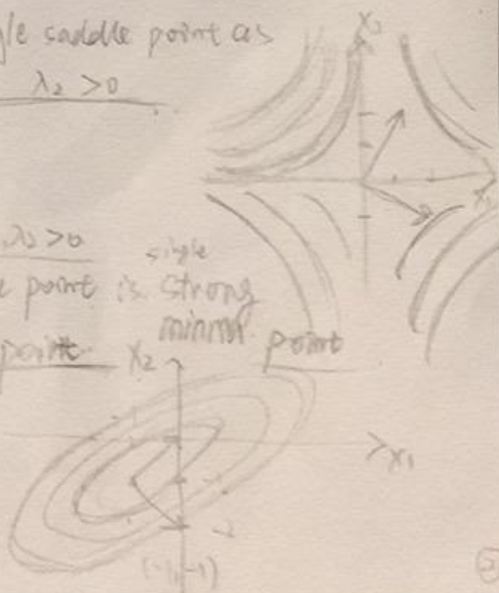 gle saddle point as
λ₂ > 0
X₂
X₁
λ₂ > 0
single
point is strong
minima
point point
X₂
X₁
-2